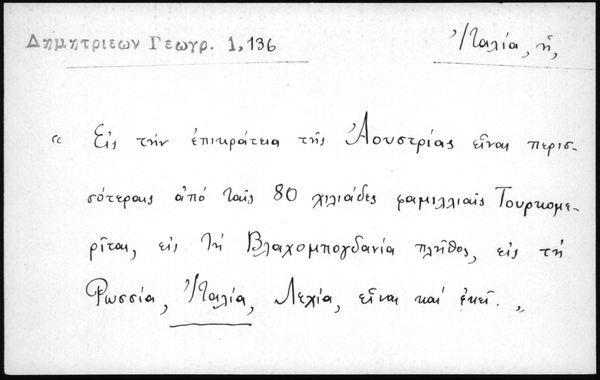 Δημητριεων Γεωγρ. 1,136
Ἰταλία, ἡ,
« Εἰς τὴν ἐπικράτεια τῆς Ἀουστρίας εἶναι περισ-
σότεραις ἀπὸ ταῖς 80 χιλιάδες φαμιλλιαῖς Τουρκομε-
ρῖται, εἰς τὴ Βλαχομπογδανία πλῆθος, εἰς τὴ
Ῥωσσία, Ἰταλία, Λεχία, εἶναι καὶ ἐκεῖ. »